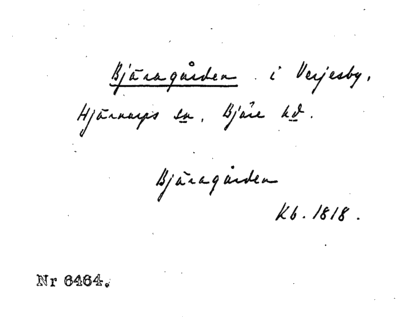 Bjäragården i Verjesby,
Hjärnarps sn, Bjäre hd.
Bjäragården
Kb. 1818.
Nr 6464.